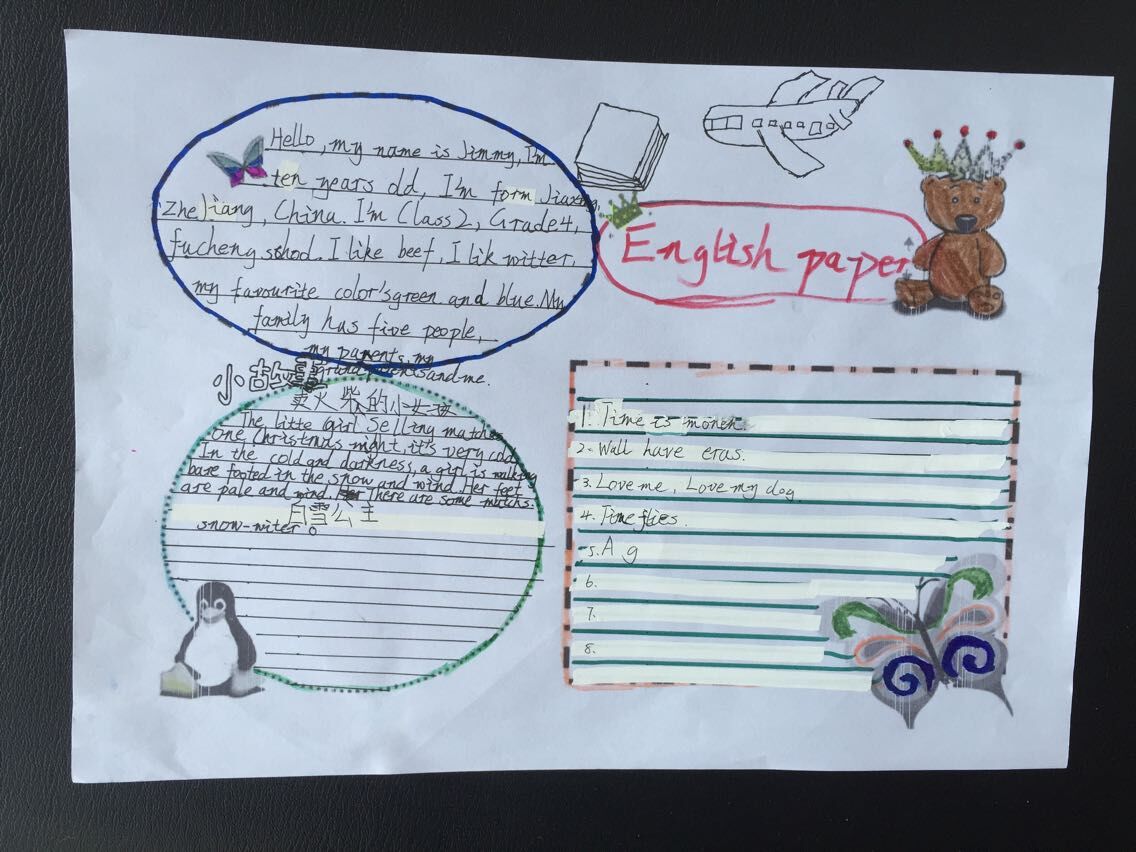 Hello, my name is Jimmy, I'm
ten years old, I'm form Jiaxing,
ZheJiang, China. I'm Class 2, Grade 4,
fucheng school. I like beef, I lik witter,
my favourite color's green and blue. My
family has five people,
my parents, my
grandparents and me.
English paper
小故事
卖火柴的小女孩
The litte Girl Selling matches
One Christmas night, it's very cold
In the cold and darkness, a girl is walking
bare footed in the snow and wind. Her feet
are pale and wind. There are some matchs.
白雪公主
snow-witer。
1. Time is monen.
2. Wall have eras.
3. Love me, Love my dog.
4. Time flies.
5. A g
6.
7.
8.